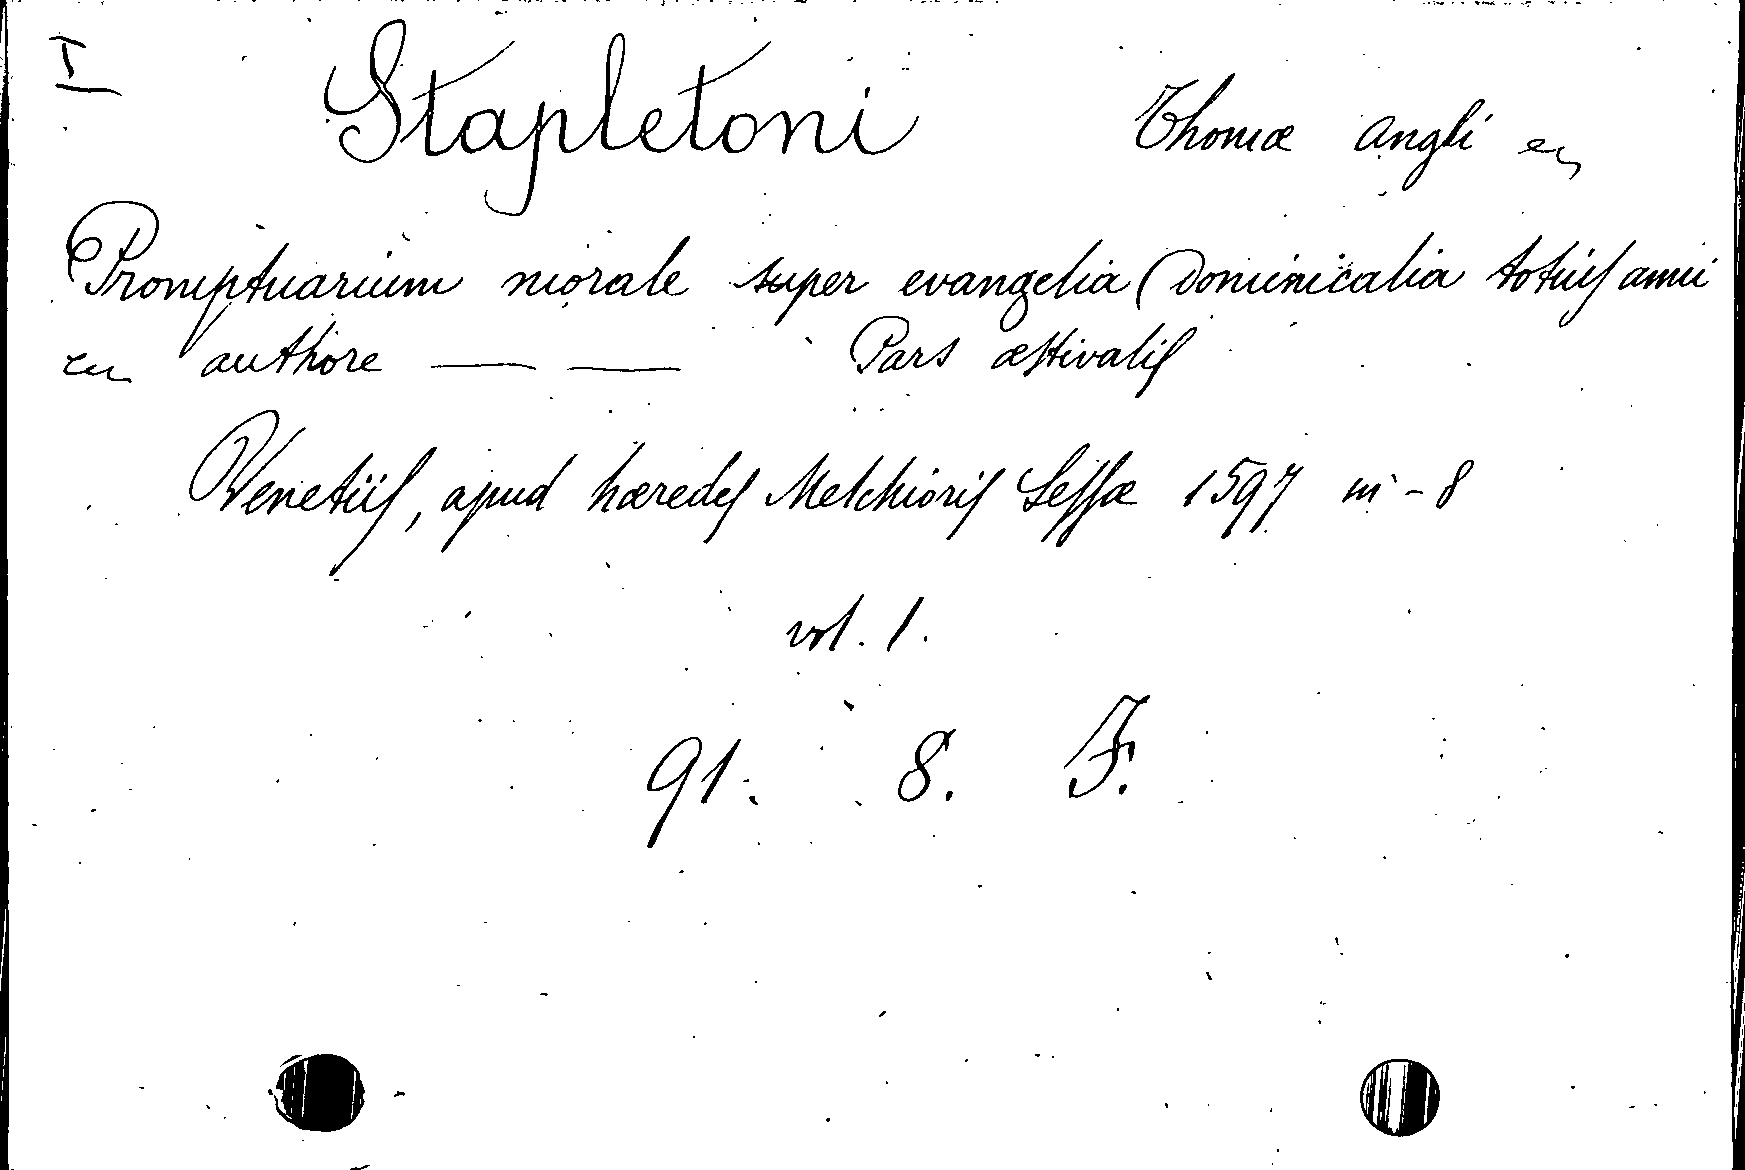 I
Stapletoni Thomæ Angli
Promptuarium morale super evangelia Dominicalia totius anni
authore — — Pars æstivalis
Venetiis, apud hæredes Melchioris Sessæ 1597 in-8
vol. 1.
91. 8. F.